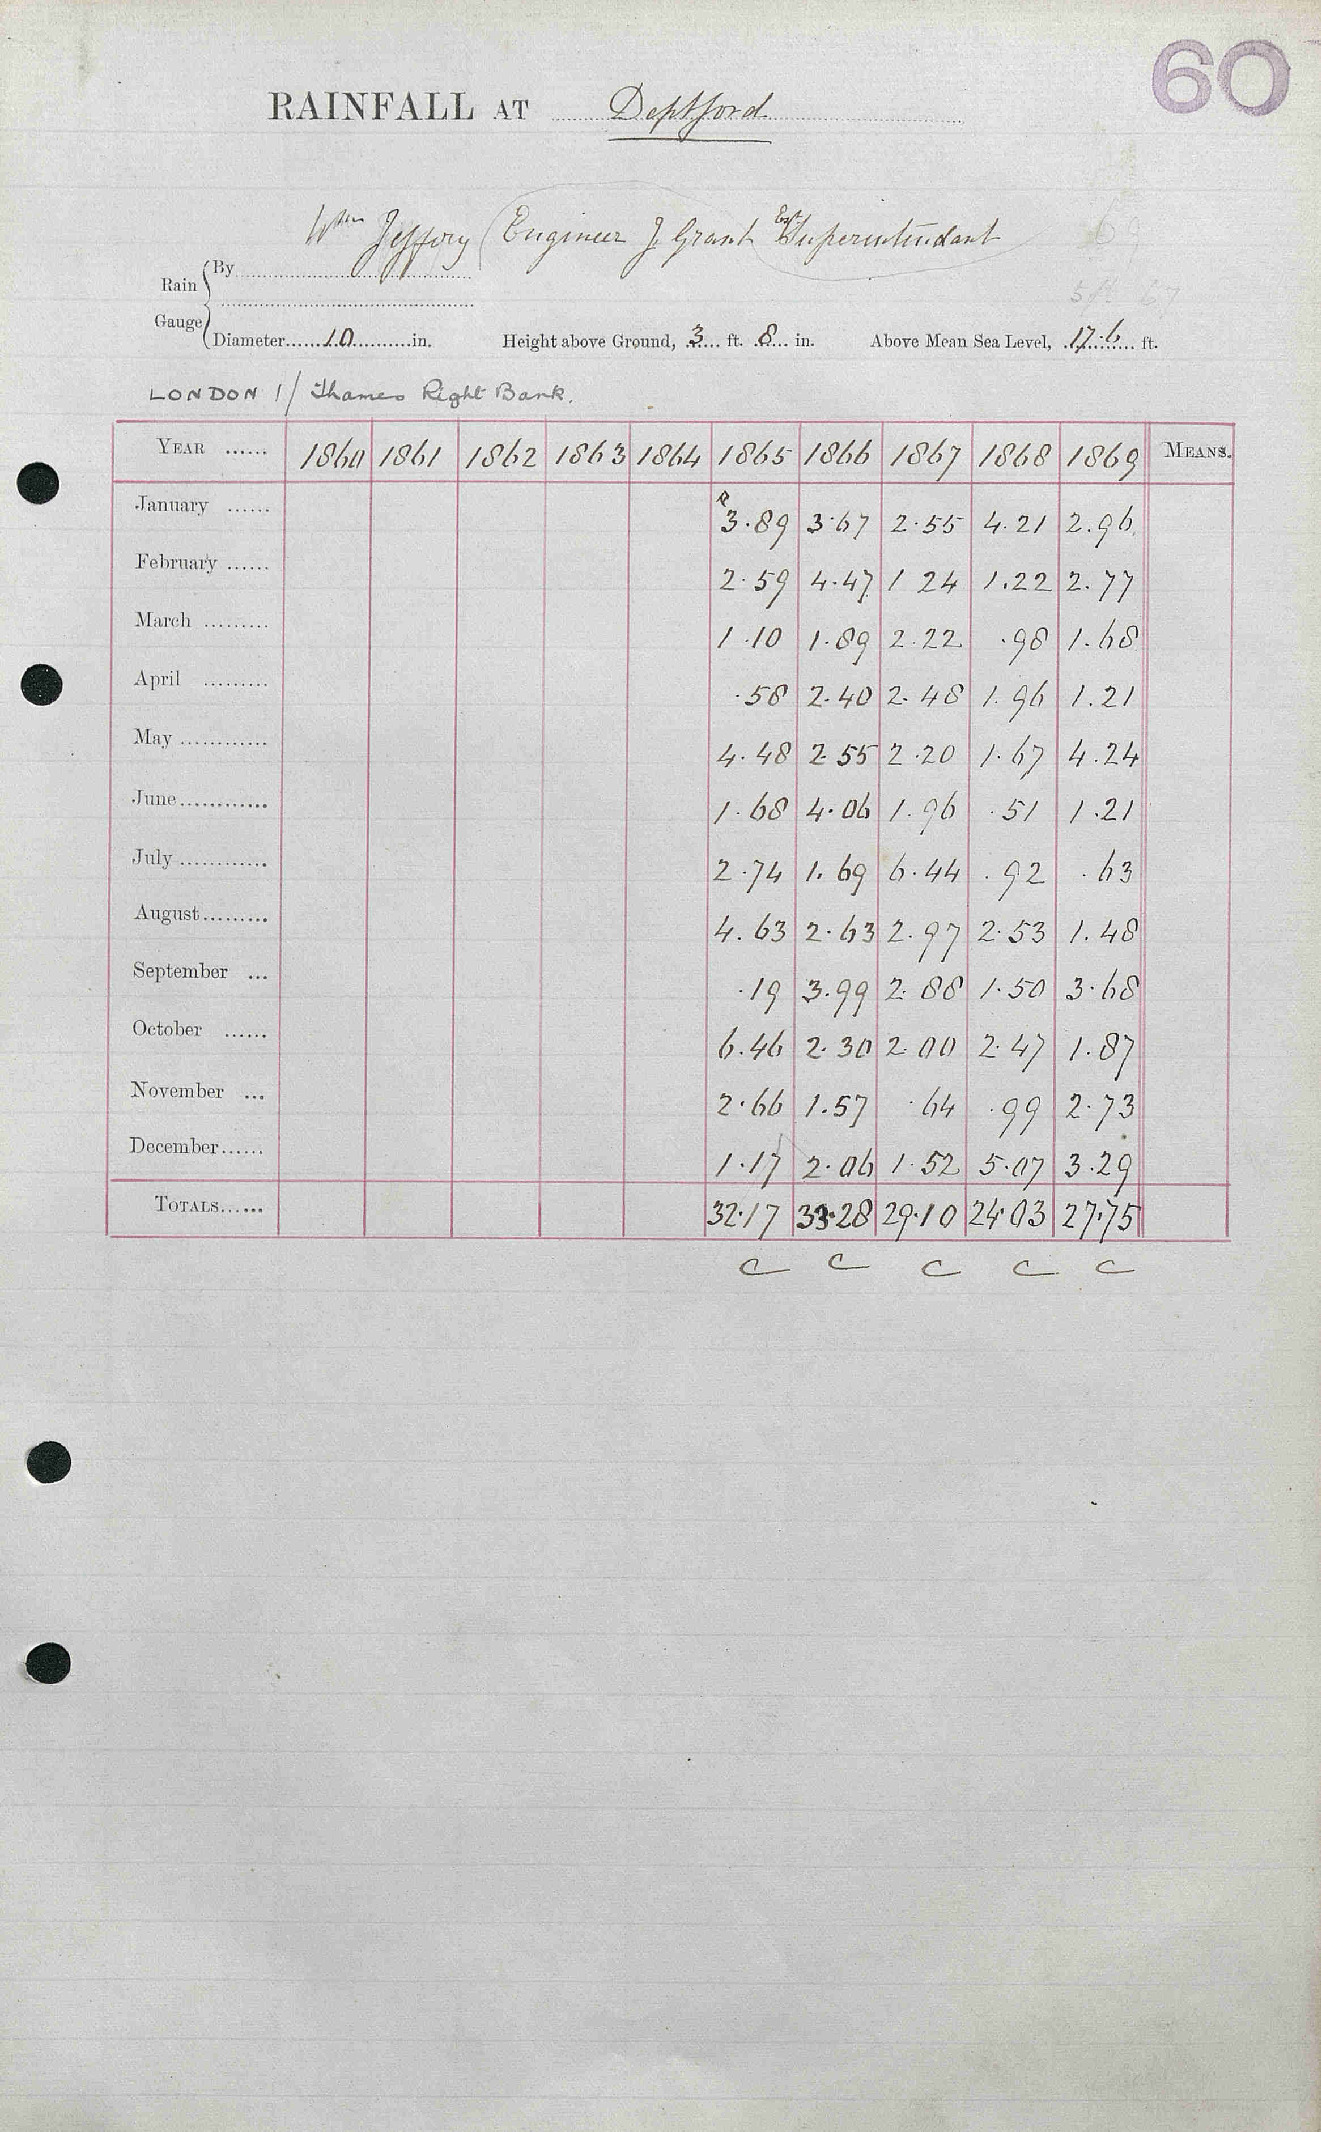 60
RAINFALL AT Deptford
Wm Jeffory (Engineer J Grant Superintendant
Rain Gauge
By
Diameter......10..........in. Height above Ground, 3 ft. 8 in. Above Mean Sea Level, 17.6 ft.
5ft 67
LONDON 1/ Thames Right Bank.
YEAR ...... 1860 1861 1862 1863 1864 1865 1866 1867 1868 1869 MEANS.
January ...... 3.89 3.67 2.55 4.21 2.96
February ...... 2.59 4.47 1 24 1.22 2.77
March ......... 1.10 1.89 2.22 .98 1.68
April ......... .58 2.40 2.48 1.96 1.21
May ............ 4.48 2.55 2.20 1.67 4.24
June............ 1.68 4.06 1.96 .51 1.21
July ............ 2.74 1.69 6.44 .92 .63
August......... 4.63 2.63 2.97 2.53 1.48
September ... .19 3.99 2.88 1.50 3.68
October ...... 6.46 2.30 2.00 2.47 1.87
November ... 2.66 1.57 .64 .99 2.73
December...... 1.17 2.06 1.52 5.07 3.29
TOTALS...... 32.17 33.28 29.10 24.03 27.75
C C C C C